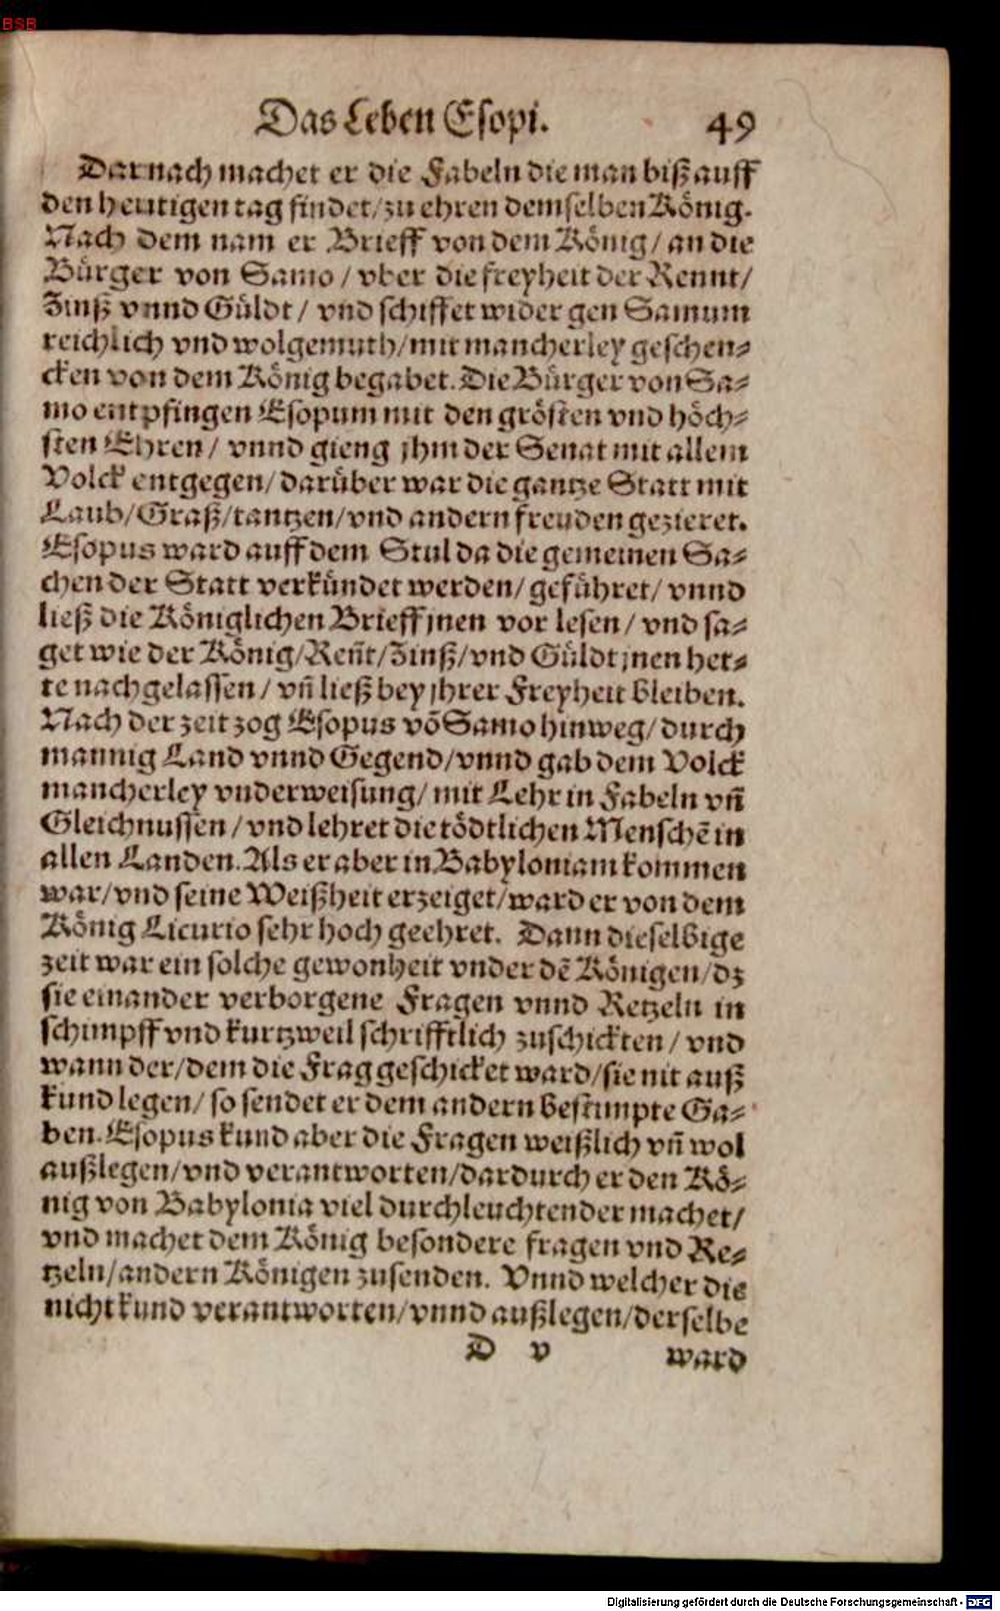 BSB
Das Leben Esopi. 49
Darnach machet er die Fabeln die man biß auff
den heutigen tag findet/ zu ehren demselben König.
Nach dem nam er Brieff von dem König/ an die
Bürger von Samo/ vber die freyheit der Rennt/
Zinß vnnd Güldt/ vnd schiffet wider gen Samum
reichlich vnd wolgemuth/ mit mancherley geschen-
cken von dem König begabet. Die Bürger von Sa-
mo entpfingen Esopum mit den grösten vnd höch-
sten Ehren/ vnnd gieng jhm der Senat mit allem
Volck entgegen/ darüber war die gantze Statt mit
Laub/ Graß/ tantzen/ vnd andern freuden gezieret.
Esopus ward auff dem Stul da die gemeinen Sa-
chen der Statt verkündet werden/ geführet/ vnnd
ließ die Königlichen Brieff jnen vor lesen/ vnd sa-
get wie der König/ Reñt/ Zinß/ vnd Güldt jnen het-
te nachgelassen/ vñ ließ bey jhrer Freyheit bleiben.
Nach der zeit zog Esopus võ Samo hinweg/ durch
mannig Land vnnd Gegend/ vnnd gab dem Volck
mancherley vnderweisung/ mit Lehr in Fabeln vñ
Gleichnussen/ vnd lehret die tödtlichen Menschẽ in
allen Landen. Als er aber in Babyloniam kommen
war/ vnd seine Weißheit erzeiget/ ward er von dem
König Licurio sehr hoch geehret. Dann dieselbige
zeit war ein solche gewonheit vnder dẽ Königen/ dz
sie einander verborgene Fragen vnnd Retzeln in
schimpff vnd kurtzweil schrifftlich zuschickten/ vnd
wann der/ dem die Frag geschicket ward/ sie nit auß
kund legen/ so sendet er dem andern bestimpte Ga-
ben. Esopus kund aber die Fragen weißlich vñ wol
außlegen/ vnd verantworten/ dardurch er den Kö-
nig von Babylonia viel durchleuchtender machet/
vnd machet dem König besondere fragen vnd Re-
tzeln/ andern Königen zusenden. Vnnd welcher die
nicht kund verantworten/ vnnd außlegen/ derselbe
D v ward
Digitalisierung gefördert durch die Deutsche Forschungsgemeinschaft - DFG